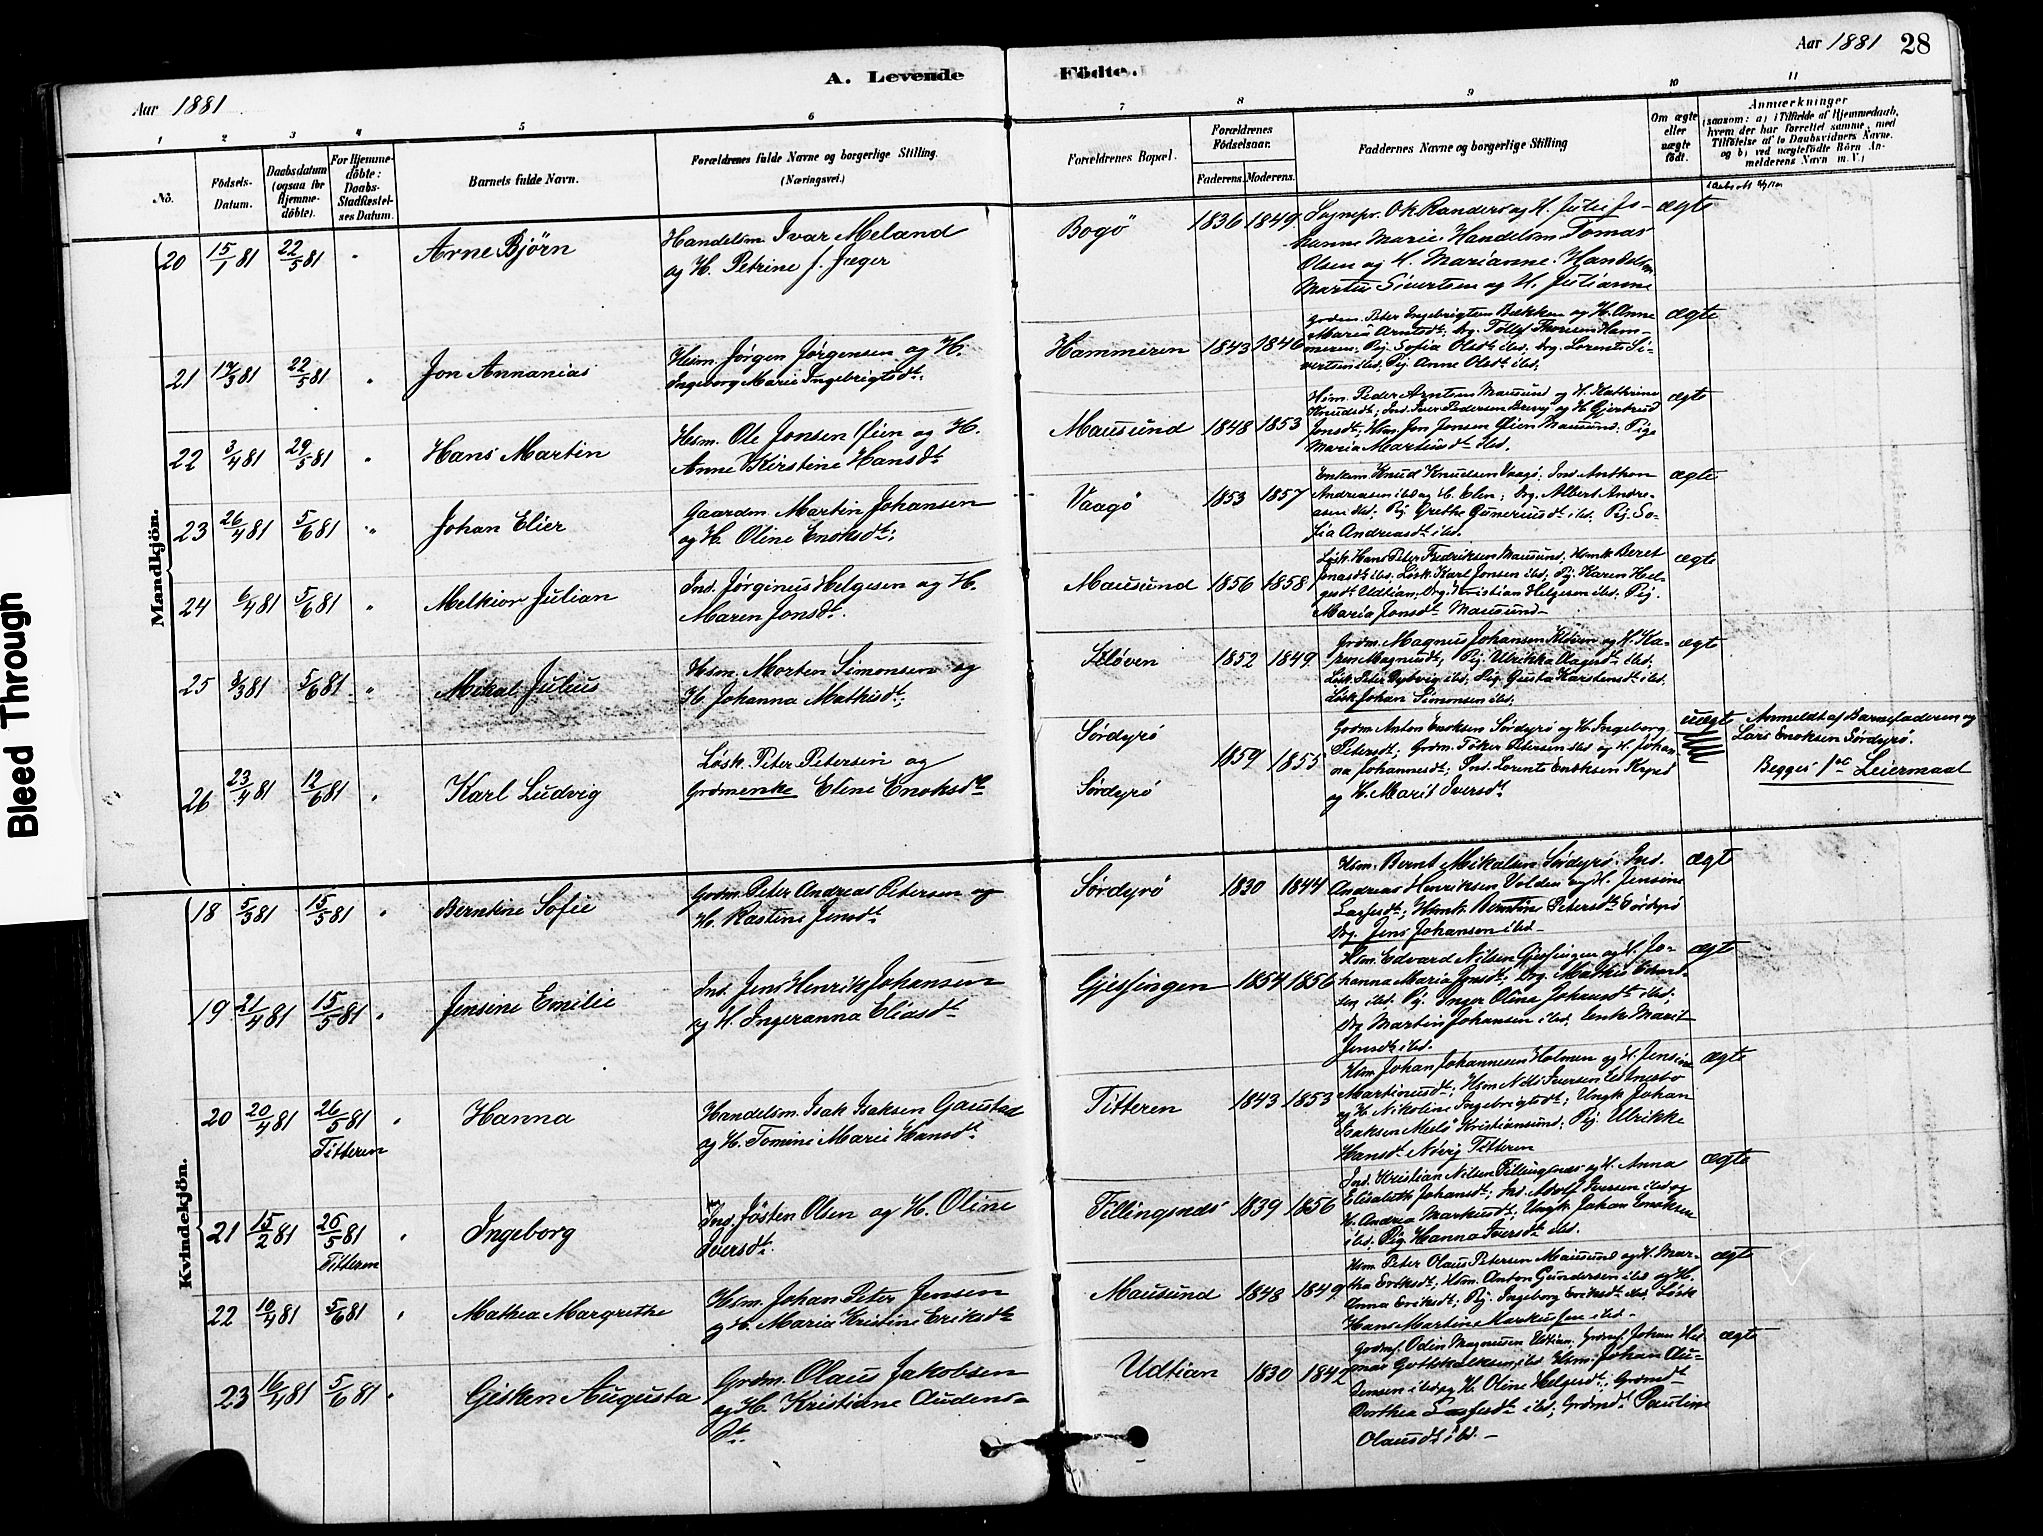 Aar 1881
A. Levende Födte.
Aar 1881 28
1 2 3 4 5 6 7 8 9 10 11
No.
Födsels-Datum.
Daabsdatum (ogsaa for Hjemme-döbte).
For Hjemme-döbte: Daabs-Stadfæstel-ses Datum.
Barnets fulde Navn.
Forældrenes fulde Navne og borgerlige Stilling. (Næringsvei.)
Forældrenes Bopæl.
Forældrenes Födselsaar.
Faderens. Moderens.
Faddernes Navne og borgerlige Stilling
Om ægte eller uægte födt.
Anmærkninger
(saasom: a) i Tilfælde af Hjemmedaab, hvem der har forrettet samme, med Tilföielse af to Daabsvidners Navne, og b) ved uægtefödte Börn An-melderens Navn m. V.)
Mandkjön.
20 15/1 81 22/5 81 " Arne Bjørn
Handelsm. Ivar Meland
og H. Petrine f. Jæger
Bogö 1836 1849
Sognepr. O.K. Randers og H. Julie Jo-
hanne Marie. Handelsm. Tomas
Olsen og H. Marianne. Handelsm.
Martin Sivertsen og H. Julianne
ægte
21 17/3 81 22/5 81 " Jon Annanias
Hsm. Jørgen Jørgensen og H.
Ingeborg Marie Ingebrigtsdt.
Hammeren 1843 1846
Grdm. Peter Ingebrigtsen Bekken og H. Anne
Maria Arntsdt; Ug. Tollef Thoresen Ham-
meren; Pig. Sofia Olsdt ibd; Ug. Lorents Si-
vertsen ibd. Pig. Anne Olsdt ibd.
ægte
22 3/4 81 29/5 81 " Hans Martin
Hsm. Ole Jonsen Øien og H.
Anne Kirstine Hansdt
Mausund 1848 1853
Hsm. Peder Arntsen Mausund og H. Kathrine
Knudsdt; Ind. Iver Pedersen Berg og H. Gjertrud
Jonsdt; Hsm. Jon Jonsen Øien Mausund; Pige
Maria Martinsdt ibd.
ægte
23 26/4 81 5/6 81 " Johan Elier
Gaardm. Martin Johansen
og H. Oline Enoksdt;
Vaagö 1853 1857
Enkem. Knud Knudsen Vaagö; Ind. Anthon
Andreasen ibd og H. Elen; Ug. Albert Andre-
asen ibd; Pig. Grethe Guneriusdt ibd; Pig. So-
fia Andreasdt ibd.
ægte
24 6/4 81 5/6 81 " Melkior Julian
Ind. Jørginus Helgesen og H.
Maren Jonsdt.
Mausund 1856 1858
Løsk. Hans Peter Fredriksen Mausund, Hsmk Beret
Jonasdt ibd. Løsk. Karl Jonsen ibd; Pig. Karen Hel-
gesdt Udtian; Ug. Kristian Helgesen ibd. Pig.
Maria Jonsdt Mausund -
ægte
25 9/3 81 5/6 81 " Mikal Julius
Hsm. Morten Simonsen og
H. Johanna Mathisdt;
Kløven 1852 1849
Grdm. Magnus Johansen Kløven og H. Ka-
ren Magnusdt; Pig. Ulrikka Aagesdt ibd.
Løsk. Peter Dybvig ibd; Pig. Gusta Karstensdt ibd.
Løsk Johan Simonsen ibd;
ægte
26 23/4 81 12/6 81 " Karl Ludvig
Løsk. Peter Petersen og
Grdmenke Eline Enoksdt
Sørdyrö
Sørdyrö
1859 1855
Grdm. Anton Enoksen Sørdyrö og H. Ingeborg
Petersdt; Grdm. Toker Petersen ibd og H. Johan-
na Johannesdt; Ind. Lorents Enoksen
og H. Marit Iversdt
uægte
Anmeldt af Barnefaderen og
Lars Enoksen Sørdyrö.
Begges 1ste Leiermaal
Kvindekjön.
18 5/3 81 15/5 81 " Berntine Sofie
Grdm. Peter Andreas Petersen og
H. Kastine Jensdt
Sørdyrö 1830 1844
Hsm. Bernt Mikalsen Sørdyrö. Ind.
Andreas Henriksen Volden og H. Jensine
Lassesdt; Hsmk. Berntine Petersdt Sørdyrö
Ug. Jens Johansen ibd -
ægt
19 21/4 81 15/5 81 " Jensine Emilie
Ind. Jens Henrik Johansen
og H. Ingeranna Eliasdt
Gjessingen 1854 1856
Hsm. Edvard Nilsen Gjessingen og H. Jo-
hanna Maria Jensdt; Ug. Mathis
ibd. Pig. Inger Olina Johansdt ibd;
Ug Martin Johansen ibd. Enke Marit
Jensdt ibd.
ægt
20 20/4 81 26/5 81 Titteren " Hanna
Handelsm. Isak Isaksen Gaustad
og H. Tomine Marie Hansdt.
Titteren 1843 1853
Hsm. Johan Johannesen Holmen og H. Jensine
Martinusdt; Hsm Nils Iversen
og H. Nikoline Ingebrigtsdt; Ungk. Johan
Isaksen Kristiansund; Pig. Ulrikke
Hansdt Titteren
ægte
21 15/2 81 26/5 81 Titteren " Ingeborg
Ind. Jøsten Olsen og H. Oline
Iversdt.
Tillingsnæs 1839 1856
Ind. Kristian Nilsen Tillingsnæs og H. Anna
Elisabeth Johansdt; Ind. Adolf Iversen ibd og
H. Andrea Markusdt; Ungk. Johan Enoksen
ibd; Pig Hanna Iversdt ibd.
ægte
22 10/4 81 5/6 81 " Mathea Margrethe
Hsm. Johan Peter Jensen
og H. Maria Kristine Eriksdt
Mausund 1848 1849
Hsm. Peter Olaus Petersen Mausund og H. Mar-
tha Eriksdt; Hsm. Anton Gundersen ibd og H.
Anna Eriksdt; Pig. Ingeborg Eriksdt ibd. Løsk
Hans Martin Markussen ibd -
ægt
23 16/4 81 5/6 81 " Gisken Augusta
Grdm. Olaus Jakobsen
og H. Kristiane Audens-
dt.
Udtian 1830 1842
Grdmf. Odin Magnusen Udtian. Grdmf. Johan
Gottskalksen ibd. Hsm. Johan Au-
densen ibd og H. Oline Helgesdt; Grdmdt
Dorthea Lassesdt ibd; Grdmdt Pauline
Olausdt ibd. -
ægte
Bleed Through